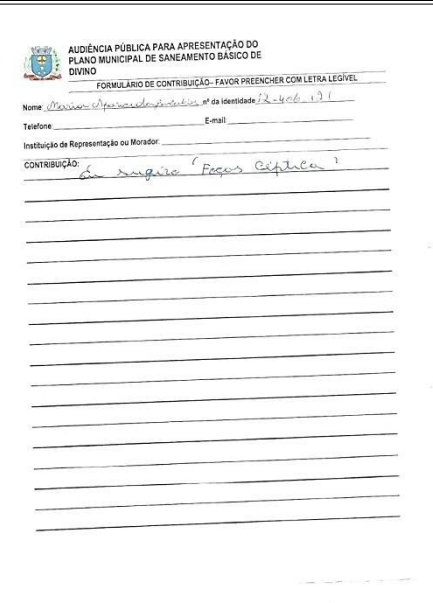 AUDIÊNCIA PÚBLICA PARA APRESENTAÇÃO DO
PLANO MUNICIPAL DE SANEAMENTO BÁSICO DE
DIVINO
FORMULÁRIO DE CONTRIBUIÇÃO– FAVOR PREENCHER COM LETRA LEGÍVEL
Nome: Maria Aparecida nº da identidade 12-406.191
Telefone: E-mail:
Instituição de Representação ou Morador:
CONTRIBUIÇÃO:
Eu sugiro "Foças Céptica"